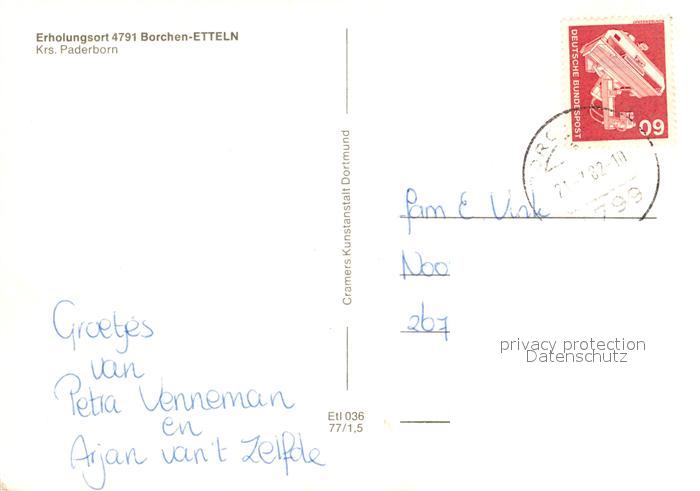 Erholungsort 4791 Borchen-ETTELN
Krs. Paderborn
DEUTSCHE BUNDESPOST
60
Cramers Kunstanstalt Dortmund
Fam E Vink
Noo
267
privacy protection
Datenschutz
Groetjes
van
Petra Venneman
en
Arjan van't Zelfde
Etl 036
77/1,5